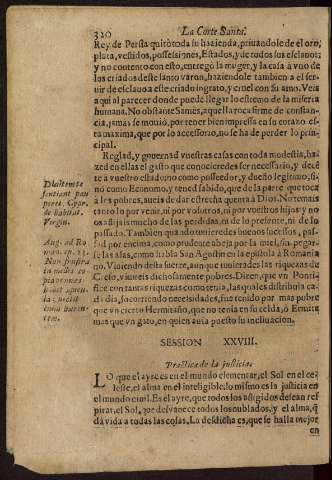 320
La Corte Santa.
Rey de Persia quitò toda su hazienda, priuandole de el oro,
plata, vestidos, possessiones, Estados, y de todos sus esclauos;
y no contento con esto, entregò la muger, y la casa à vno de
los criados deste santo varon, haziendole tambien a el ser-
uir de esclauo a este criado ingrato, y cruel con su amo. Veis
aqui al parecer donde puede llegar lo estremo de la miseria
humana. No obstante Sames, aquella roca firme de constan-
cia, jamas se mouiò, por tener bien impressa en su coraço es-
ta maxima, que por lo accessorio, no se ha de perder lo prin-
cipal.
Reglad, y gouernad vuestras casas con toda modestia, ha-
zed en ellas el gasto que conocieredes ser necessario, y decid
te à vuestro estado, no como posseedor, y dueño legitimo, si-
no como Economo, y tened sabido, que de la parte que toca
à los pobres, aueis de dar estrecha quenta à Dios. No temais
tanto lo por venir, ni por vosotros, ni por vuestros hijos y no
os aflijais mucho de las perdidas, ni de lo presente, ni de lo
passado. Tambien quando tuuieredes buenos sucessos, pas-
sad por encima, como prudente abeja por la miel, sin pegar-
se las alas, como habla San Agustin en la epistola à Romania
no. Viuiendo desta suerte, aunque tuuieredes las riquezas de
Creso, viuireis dichosamente pobres. Dizen, que vn Ponti-
fice con tantas riquezas como tenia, las quales distribuia ca-
da dia, socorriendo necessidades, fue tenido por mas pobre
que vn cierto Hermitaño, que no tenia en su celda, ò Ermita
mas que vn gato, en quien auia puesto su inclinacion.
Aug. ad Ro
SESSION XXVIII.
Practica de la justicia.
LO que el ayre es en el mundo elementar, el Sol en el ce-
leste, el alma en el inteligible, lo mismo es la justicia en
el mundo ciuil. Es el ayre, que todos los afligidos desean res-
pirar, el Sol, que desvanece todos los nublados, y el alma, q̃
dà vida a todas las cosas. La desdicha es, que se halla mejor
en